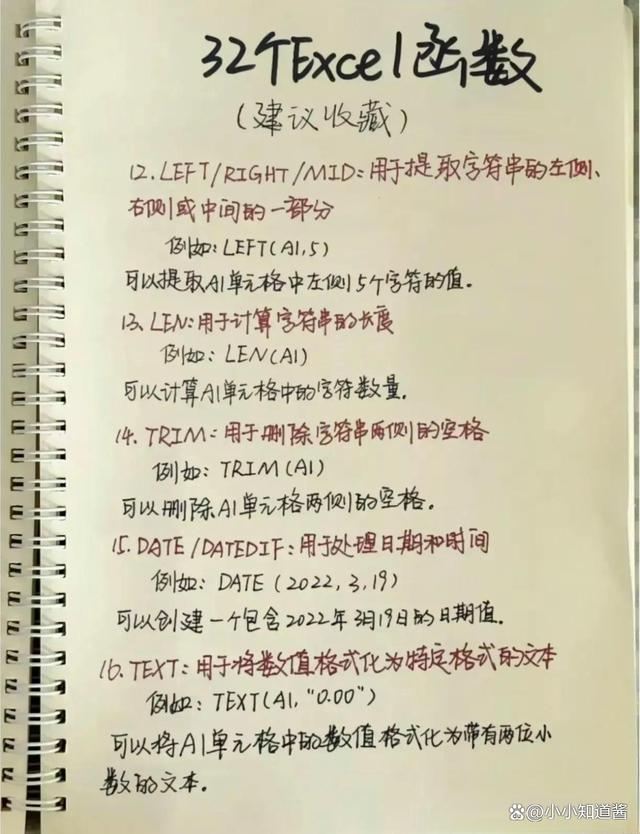 32个Excel函数
(建议收藏)
12.LEFT/RIGHT/MID:用于提取字符串的左侧、
右侧或中间的一部分
例如:LEFT(A1,5)
可以提取A1单元格中左侧5个字符的值。
13.LEN:用于计算字符串的长度
例如:LEN(A1)
可以计算A1单元格中的字符数量.
14.TRIM:用于删除字符串两侧的空格
例如:TRIM(A1)
可以删除A1单元格两侧的空格。
15.DATE/DATEDIF:用于处理日期和时间
例如:DATE(2022,3,19)
可以创建一个包含2022年3月19日的日期值.
16.TEXT:用于将数值格式化为特定格式的文本
例如:TEXT(A1,"0.00")
可以将A1单元格中的数值格式化为带有两位小
数的文本。
小小知道酱